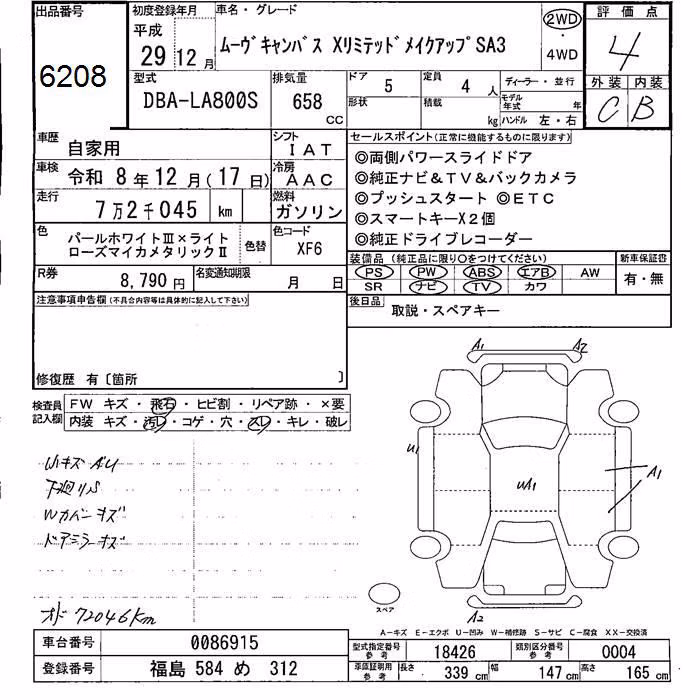 出品番号
6208
初度登録年月
平成
29 12 月
車名・グレード
ムーヴキャンバス XリミテッドメイクアップSA3
2WD
・
4WD
評価点
4
外装 内装
C B
型式
DBA-LA800S
排気量
658
CC
ドア
5
定員
4 人
形状
積載
kg
ディーラー・並行
モデル
年式 年
ハンドル 左・右
車歴
自家用
シフト
IAT
車検
令和 8年12月(17日)
冷房
AAC
走行
7万2千045 km
燃料
ガソリン
色
パールホワイトⅢ×ライト
ローズマイカメタリックⅡ
色替
色コード
XF6
R券
8,790 円
名変通知期限
月 日
セールスポイント(正常に機能するものに限ります)
◎両側パワースライドドア
◎純正ナビ&TV&バックカメラ
◎プッシュスタート ◎ETC
◎スマートキーX2個
◎純正ドライブレコーダー
装備品 (純正品に限り○をつけてください)
PS PW ABS エアB AW
SR ナビ TV カワ
新車保証書
有・無
後日品
取説・スペアキー
注意事項申告欄(不具合内容等は具体的に記入して下さい)
修復歴 有〔箇所 〕
検査員
記入欄
FW キズ・飛石・ヒビ割・リペア跡・×要
内装 キズ・汚レ・コゲ・穴・スレ・キレ・破レ
Wキズ AU
下廻りS
Wカバーキズ
ドアミラーキズ
オド 72046km
A1 A2
U1
UA1
A1
A2
スペア
A-キズ E-エクボ U-凹み W-補修跡 S-サビ C-腐食 XX-交換済
車台番号
0086915
登録番号
福島 584 め 312
型式指定番号
参考
18426
類別区分番号
参考
0004
車庫証明用
参考
長さ
339 cm
幅
147 cm
高さ
165 cm